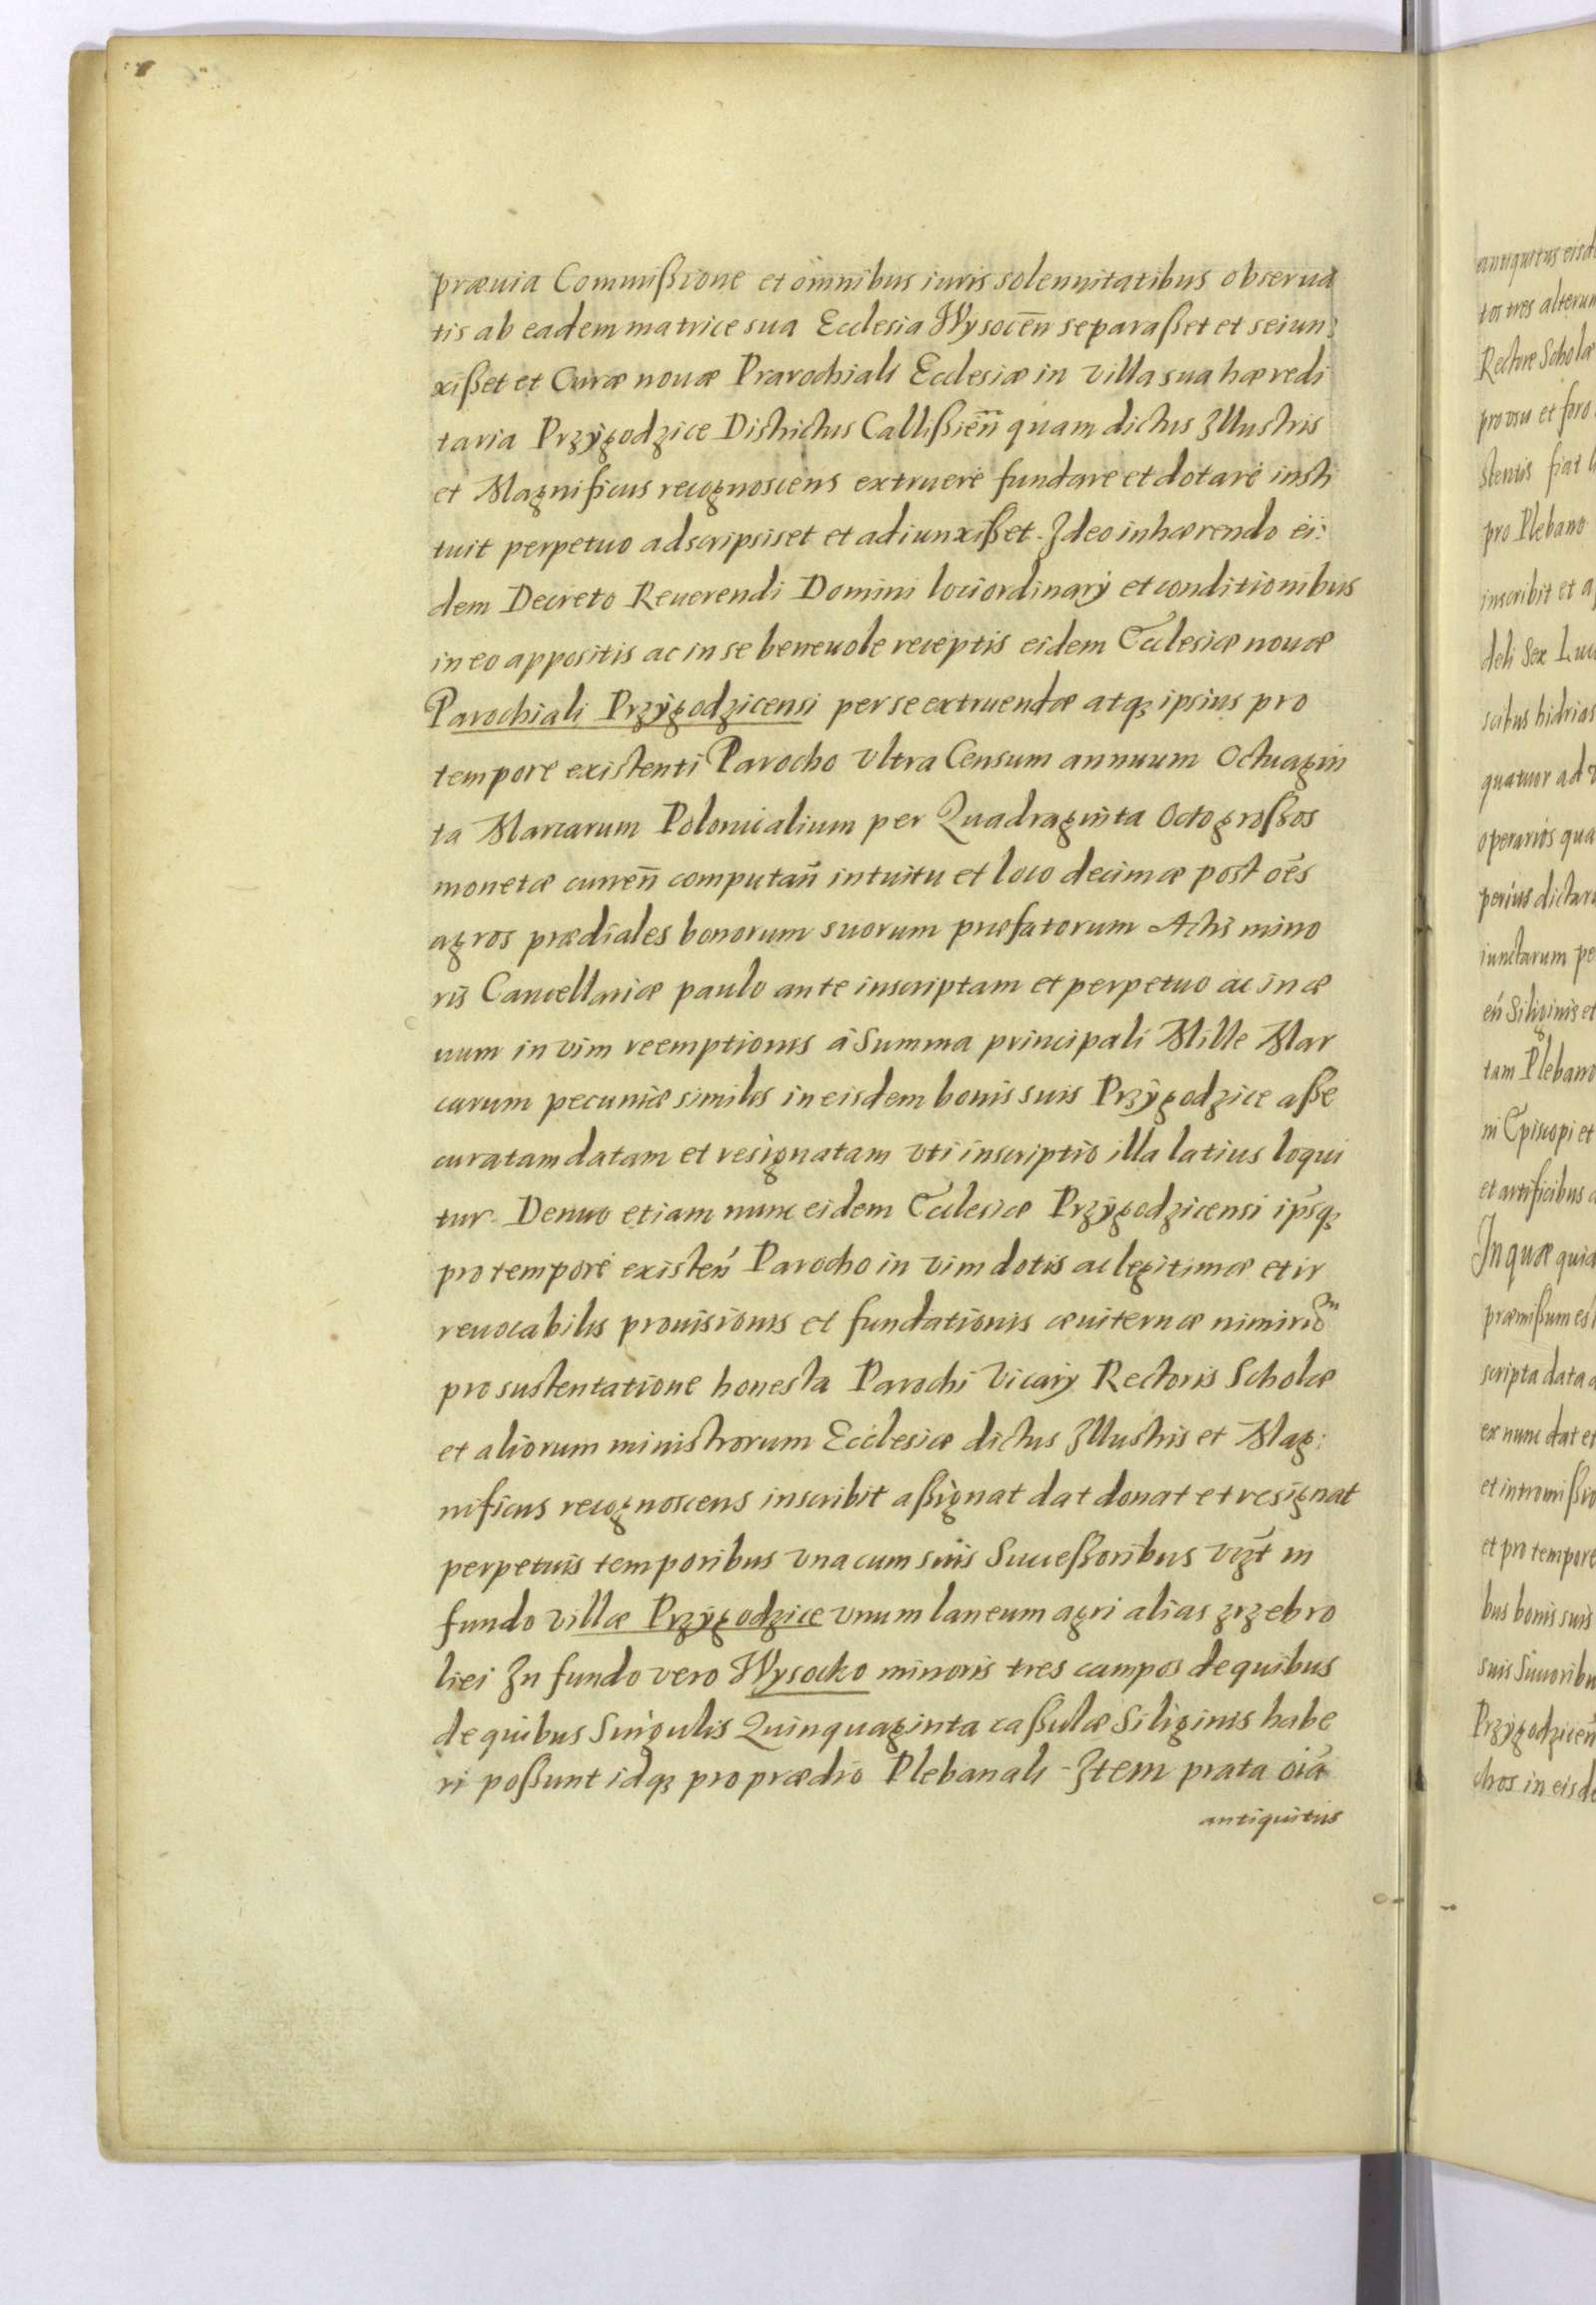 præuia Commißione et omnibus iuris solennitatibus obserua
tis ab eadem matrice sua Ecclesia Wysocen̄ separaßet et seiun:
xißet et Curæ nouæ Prarochiali Ecclesiæ in villa sua hæredi
taria Przÿgodzice Districtus Callißien̄ quam dictus Illustris
et Magnificus recognoscens extruere fundare et dotare insti
tuit perpetuo adscripsiset et adiunxißet. Ideo inhærendo ei:
dem Decreto Reuerendi Domini loci ordinarÿ et conditionibus
in eo appositis ac in se beneuole receptis eidem Ecclesiæ nouæ
Parochiali Przÿgodzicensi per se extruendæ atqꝫ ipsius pro
tempore existenti Parocho vltra Censum annuum Octuagin
ta Marcarum Polonicalium per Quadraginta Octo großos
monetæ curren̄ computan̄ intuitu et loco decimæ post oēs
agros prædiales bonorum suorum præfatorum Actis mino
ris Cancellariæ paulo ante inscriptam et perpetuo ac in æ
uum in vim reemptionis à Summa principali Mille Mar
carum pecuniæ similis in eisdem bonis suis Przÿgodzice aße
curatam datam et resignatam vti inscriptio illa latius loqui
tur. Denuo etiam nunc eidem Ecclesiæ Przÿgodzicensi ips̄qꝫ
pro tempore existen̄ Parocho in vim dotis ac legitimæ et ir
reuocabilis prouisionis et fundationis æuiternæ nimirūm
pro sustentatione honesta Parochi Vicarÿ Rectoris Scholæ
et aliorum ministrorum Ecclesiæ dictus Illustris et Mag:
nificus recognoscens inscribit aßignat dat donat et resignat
perpetuis temporibus vna cum suis Succeßoribus vizt̄ in
fundo villæ Przÿgodzice vnum laneum agri alias zrzebro
liei In fundo vero Wysocko minoris tres campos de quibus
de quibus Singulis Quinquaginta caßulæ Siliginis habe
ri poßunt idqꝫ pro prædio Plebanali - Item prata oīa
antiquitus